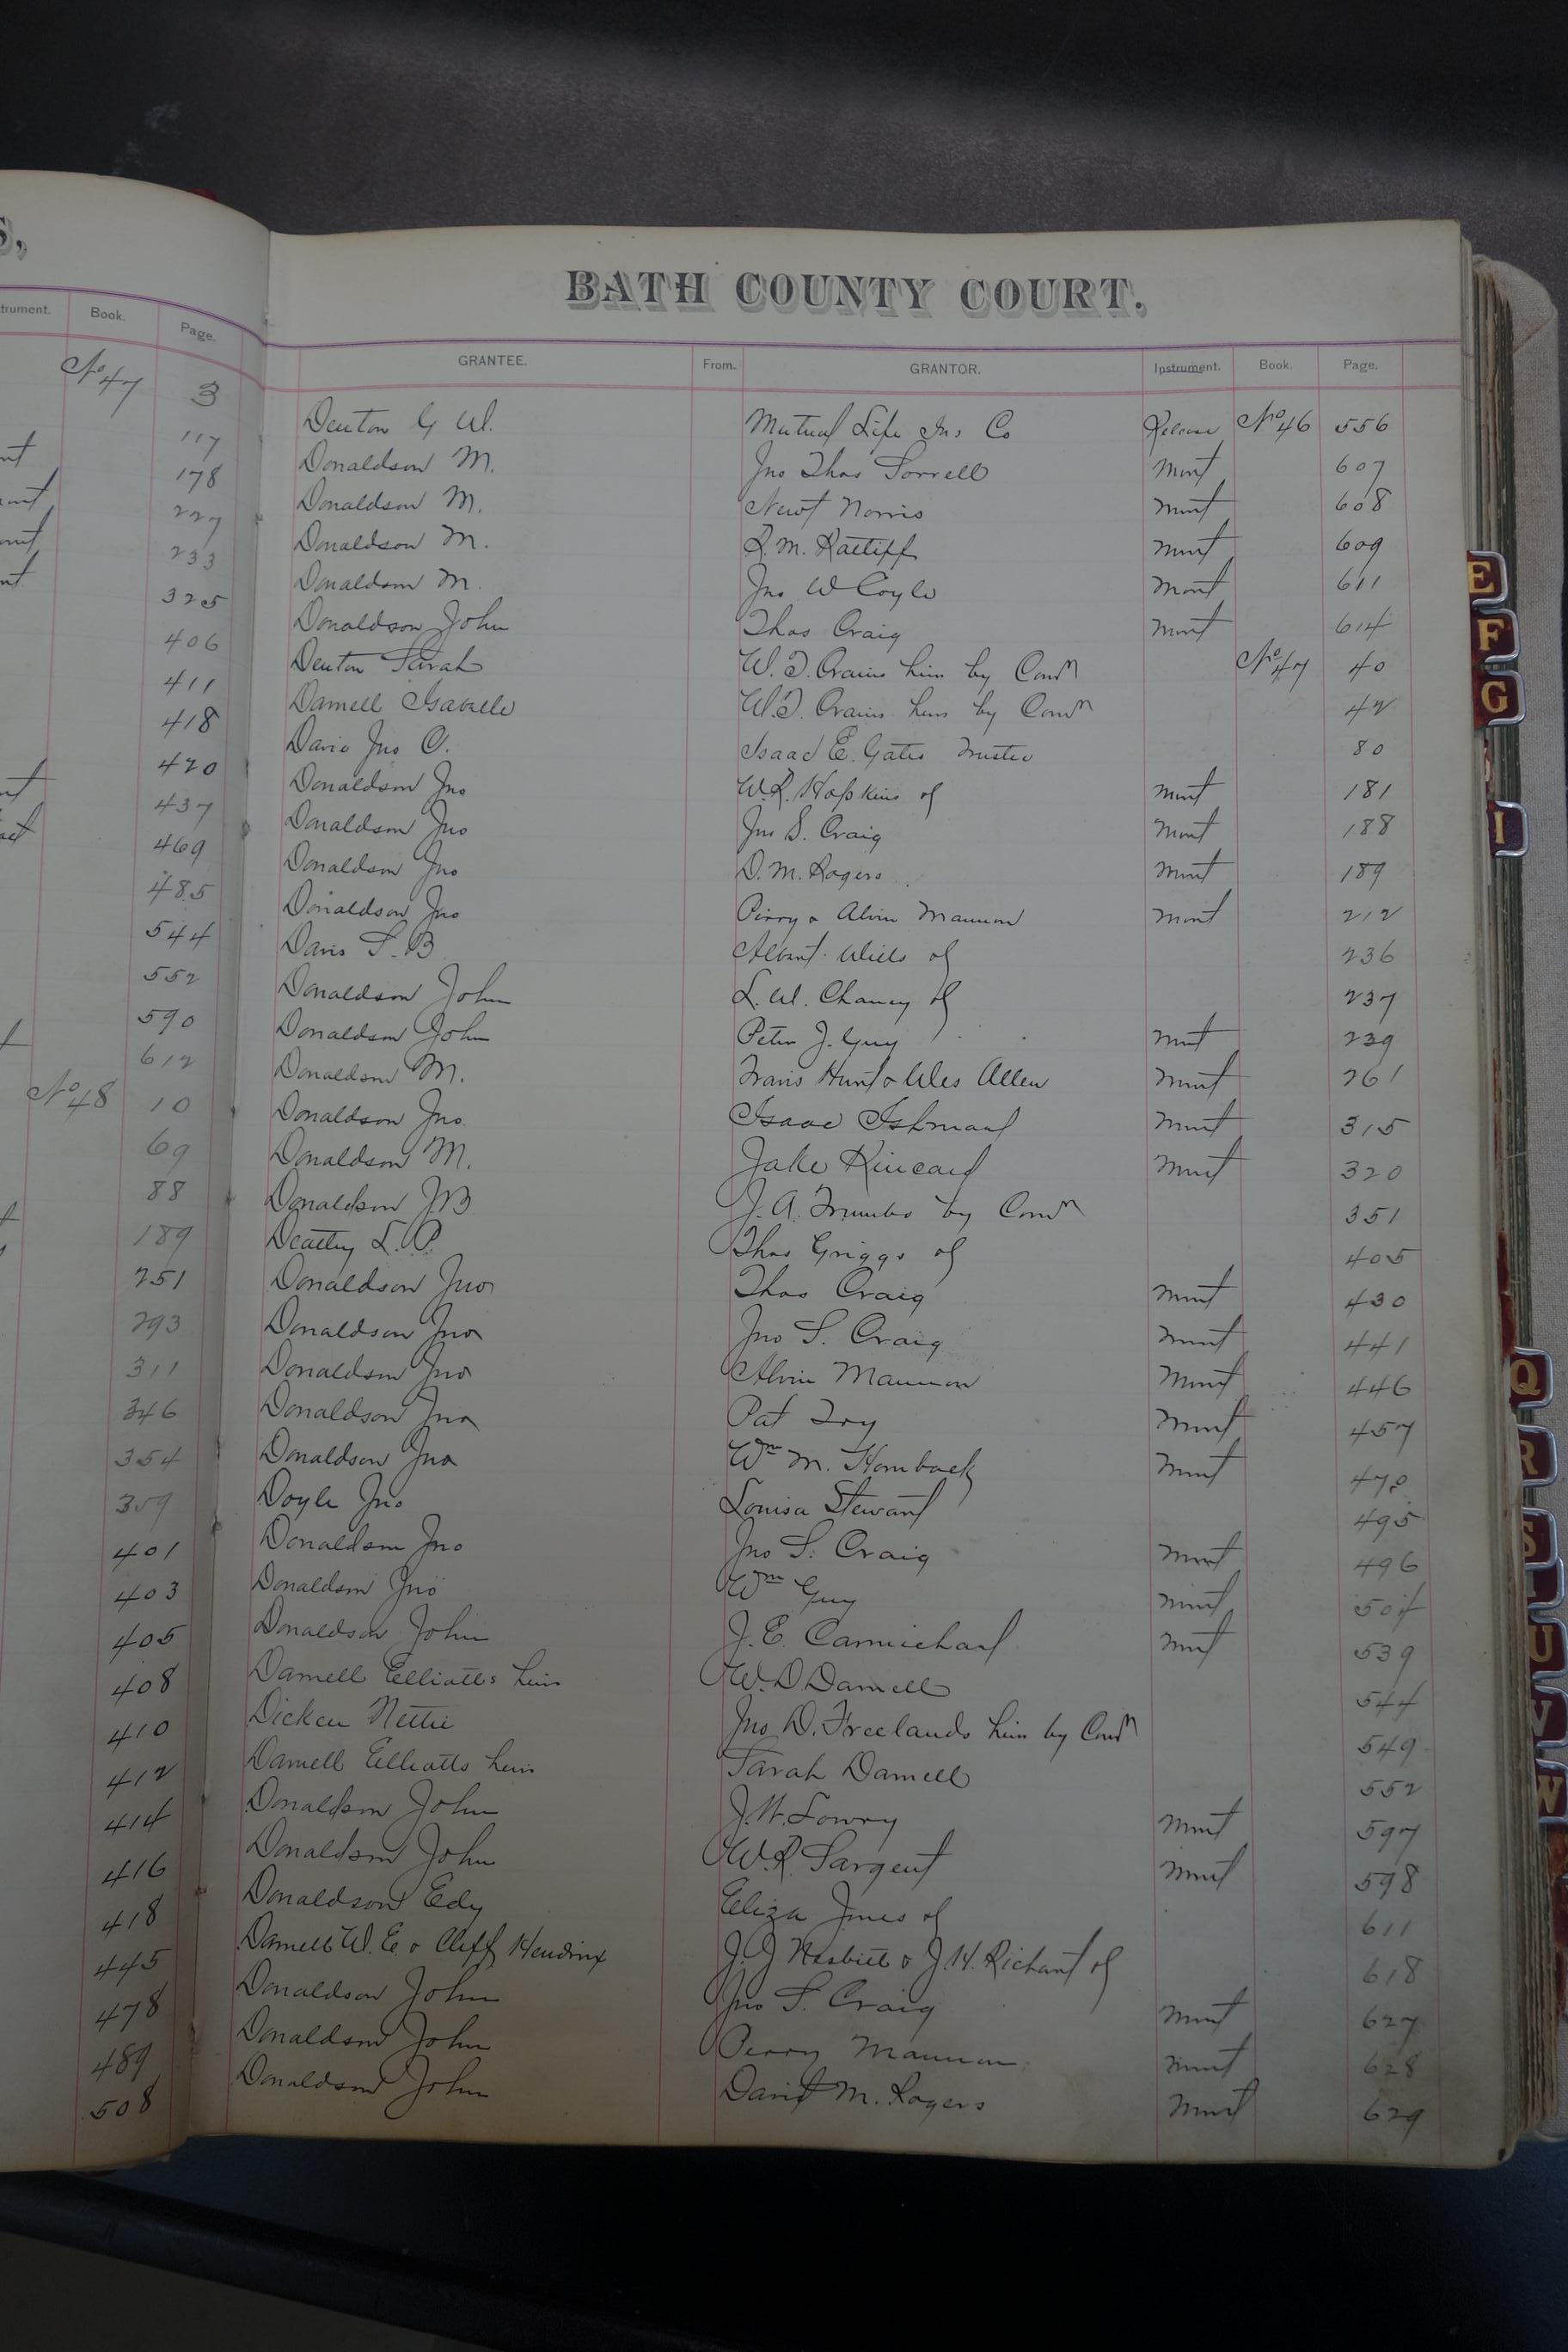 S,
trument. Book. Page.
No 47 3
117
nt 178
227
233
nt 325
406
411
418
420
437
469
485
544
552
590
612
No 48 10
69
88
189
251
293
311
346
354
359
401
403
405
408
410
412
414
416
418
445
478
489
508
BATH COUNTY COURT.
GRANTEE. From. GRANTOR. Instrument. Book. Page.
Denton G W. Mutual Life Ins Co Release No 46 556
Donaldson M. Jno Thos Sorrell Mort 607
Donaldson M. Newt Norris Mort 608
Donaldson M. R. M. Ratliff Mort 609
Donaldson M. Jno W Coyle Mort 611
Donaldson John Thos Craig Mort 614
Denton Sarah W. T. Crains heirs by Comr No 47 40
Darnell Isabelle W. T. Crains heirs by Comr 42
Davis Jno C. Isaac E. Gates Trustee 80
Donaldson Jno W. R. Hopkins of Mort 181
Donaldson Jno Jno S. Craig Mort 188
Donaldson Jno D. M. Rogers Mort 189
Donaldson Jno Perry & Alvin Maumon Mort 212
Davis S. B Albert Wills of 236
Donaldson John L. W. Chaney of 237
Donaldson John Peter J. Guy Mort 239
Donaldson M. Travis Hunt & Wes Allen Mort 261
Donaldson Jno Isaac Ishmael Mort 315
Donaldson M. Jake Kincaid Mort 320
Donaldson J B J. A. Trumbo by Comr 351
L. P. Thos Griggs of 405
Donaldson Jno Thos Craig Mort 430
Donaldson Jno Jno S. Craig Mort 441
Donaldson Jno Alvin Maumon Mort 446
Donaldson Jno Pat Mort 457
Donaldson Jno Wm M. Hornback Mort 470
Doyle Jno Louisa Stewart 495
Donaldson Jno Jno S. Craig Mort 496
Donaldson Jno Wm Guy Mort 504
Donaldson John J. E Carmichael Mort 539
Darnell Elliotts heirs W. D Darnell 544
Dicken Nettie Jno D. Freelands heirs by Comr 549
Darnell Elliotts heirs Sarah Darnell 552
Donaldson John J. W. Lowry Mort 597
Donaldson John W. R. Sargent Mort 598
Donaldson Edy Eliza Jones of 611
Darnell W. E. & Cliff Hendrix J. J Nesbitt & J. H. Richart of 618
Donaldson John Jno S. Craig Mort 627
Donaldson John Perry Maumon Mort 628
Donaldson John David M. Rogers Mort 629
E
F
G
I
Q
R
S
U
V
W